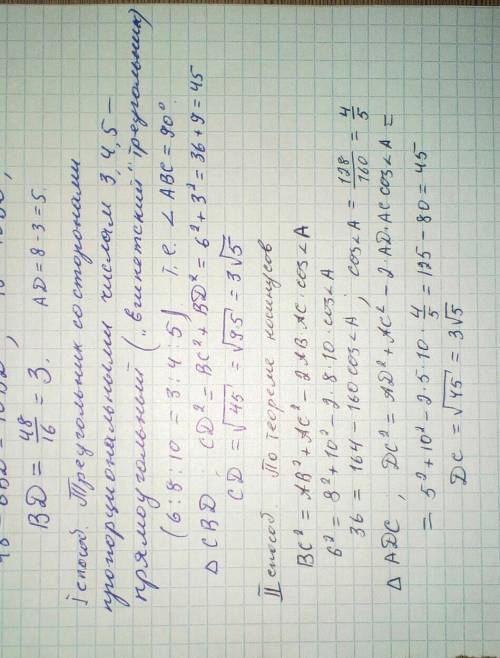 BD = 48/16 = 3. AD = 8 - 3 = 5.
I способ. Треугольник со сторонами
пропорциональными числам 3, 4, 5 –
прямоугольный ("египетский" треугольник)
(6 : 8 : 10 = 3 : 4 : 5) т.е. ∠ABC = 90°
△ CBD, CD² = BC² + BD² = 6² + 3² = 36 + 9 = 45
CD = √45 = √9·5 = 3√5
II способ. По теореме косинусов
BC² = AB² + AC² - 2 AB·AC·cos∠A
6² = 8² + 10² - 2·8·10·cos∠A
36 = 164 - 160 cos∠A; cos∠A = 128/160 = 4/5
△ ADC, DC² = AD² + AC² - 2·AD·AC cos∠A =
= 5² + 10² - 2·5·10·4/5 = 125 - 80 = 45
DC = √45 = 3√5